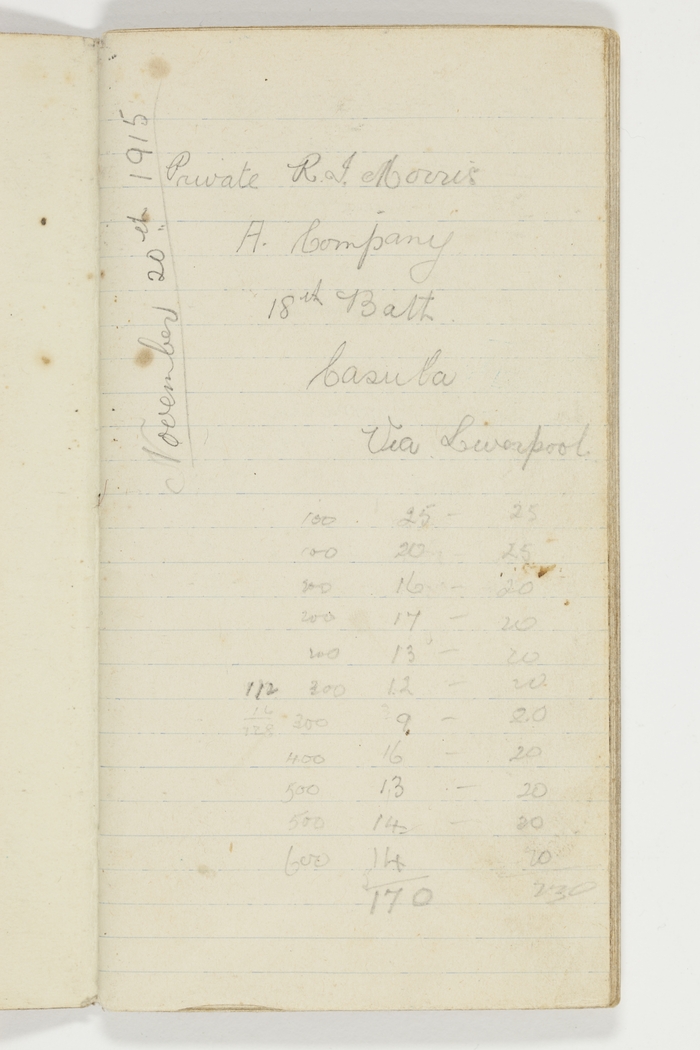 November 20th 1915
Private R.I. Morris
A. Company
18th Batt
Casula
Via Liverpool
100 25 - 25
100 20 - 25
200 16 - 20
200 17 - 20
200 13 - 20
112 300 12 - 20
300 9 - 20
400 16 - 20
500 13 - 20
500 14 - 20
600 14 20
170 230